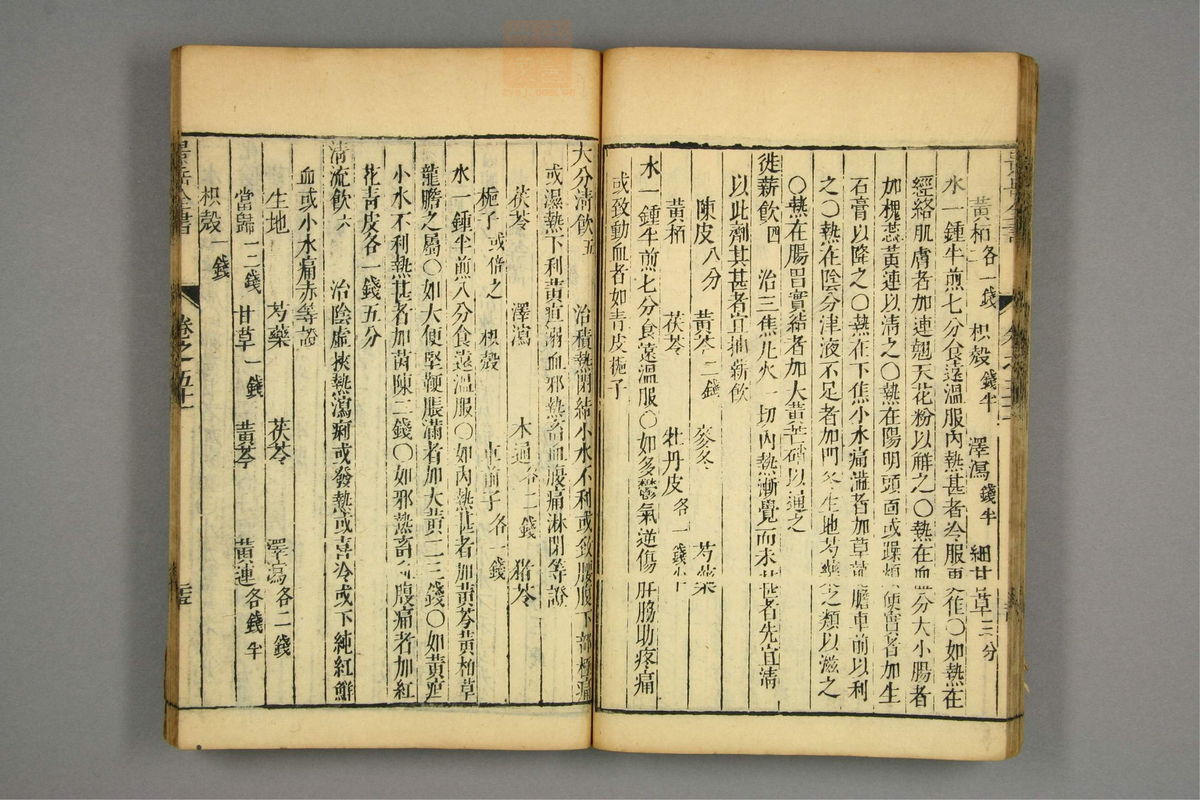 黃栢各一錢　枳殼錢半　澤瀉錢半　細甘草三分
水一鍾半煎七分食遠溫服內熱甚者冷服更佳○如熱在
經絡肌膚者加連翹天花粉以解之○熱在血分大小腸者
加槐蕊黃連以清之○熱在陽明頭面或躁煩便實者加生
石膏以降之○熱在下焦小水痛澁者加草龍膽車前以利
之○熱在陰分津液不足者加門冬生地芍藥之類以滋之
○熱在腸胃實結者加大黃芒硝以通之
徙薪飲四　治三焦凡火一切內熱漸覺而未甚者先宜清
以此劑其甚者宜抽薪飲
陳皮八分　黃芩二錢　麥冬　芍藥
黃栢　茯苓　牡丹皮各一錢半
水一鍾半煎七分食遠溫服○如多鬱氣逆傷肝脇肋疼痛
或致動血者加青皮梔子
大分清飲五　治積熱閉結小水不利或致腰腹下部極痛
或濕熱下利黃疸溺血邪熱蓄血腹痛淋閉等證
茯苓　澤瀉　木通各二錢　猪苓
梔子或倍之　枳殼　車前子各一錢
水一鍾半煎八分食遠溫服○如內熱甚者加黃芩黃柏草
龍膽之屬○如大便堅鞕脹滿者加大黃二三錢○如黃疸
小水不利熱甚者加茵陳二錢○如邪熱蓄血腹痛者加紅
花青皮各一錢五分
清流飲六　治陰虛挾熱瀉痢或發熱或喜冷或下純紅鮮
血或小水痛赤等證
生地　芍藥　茯苓　澤瀉各二錢
當歸一二錢　甘草一錢　黃芩　黃連各錢半
枳殼一錢
景岳全書　卷之五十一